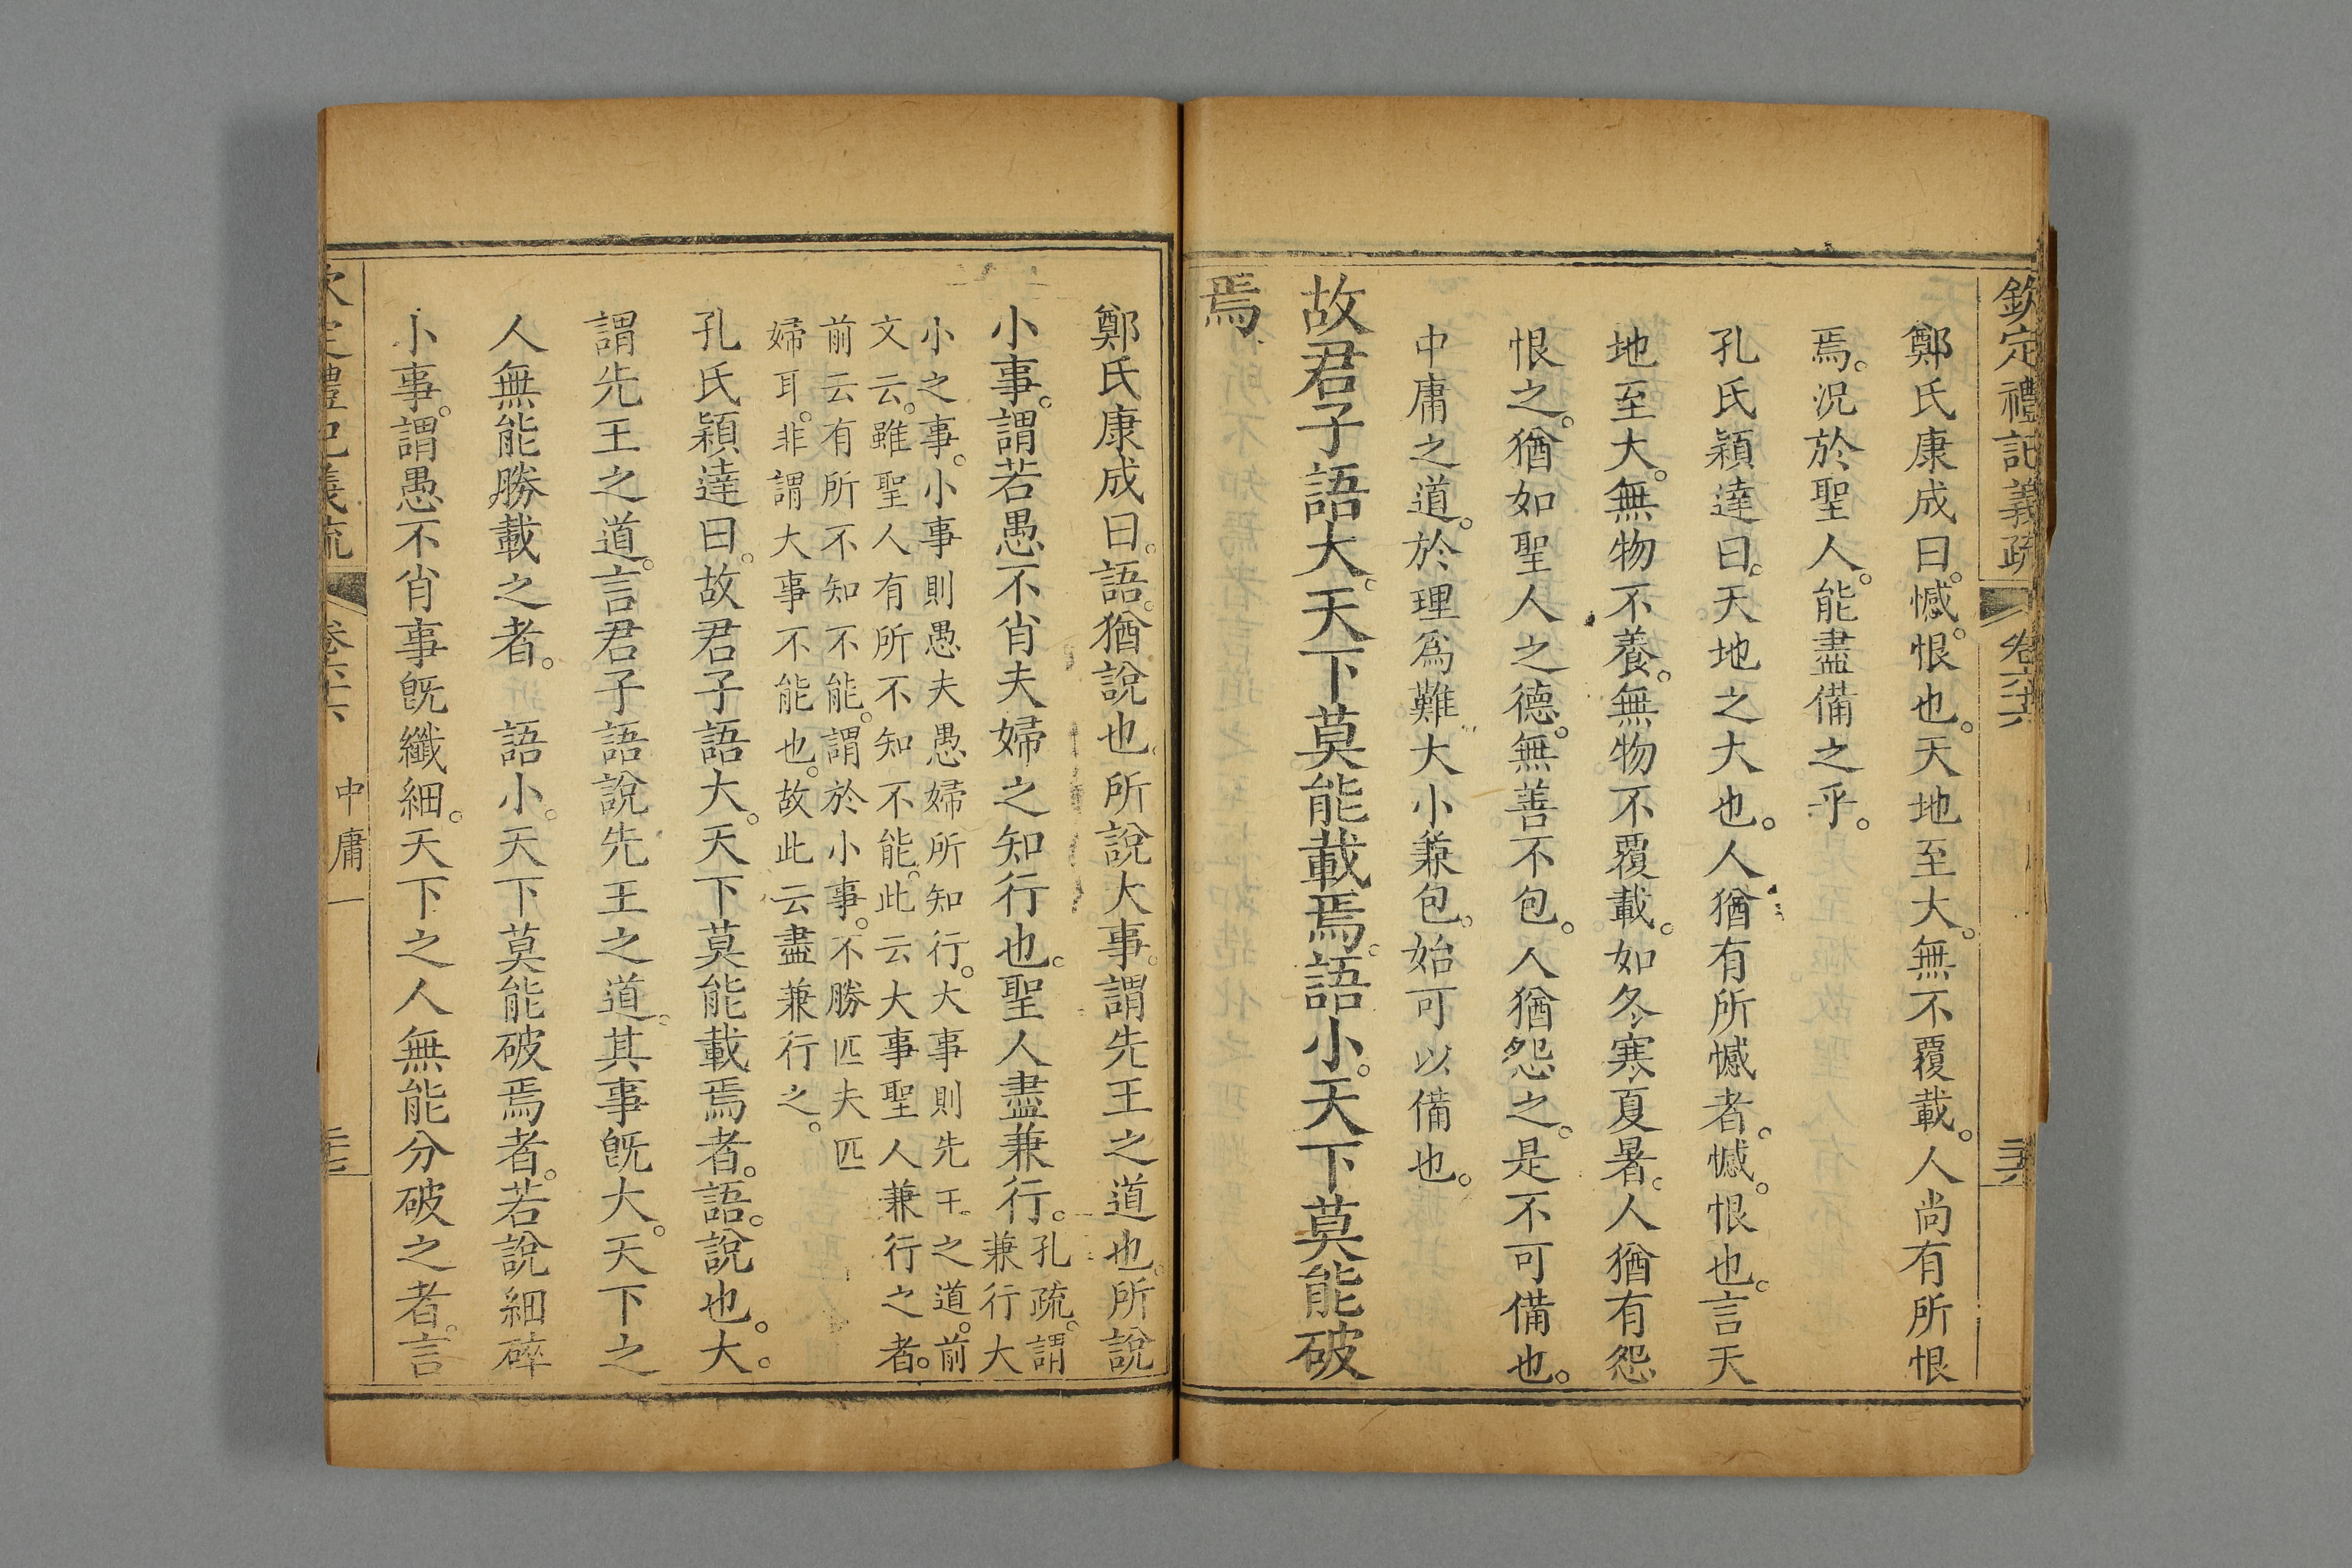 欽定禮記義疏 卷六十六 三十六
鄭氏康成曰。憾。恨也。天地至大。無不覆載。人尚有所恨
焉。況於聖人。能盡備之乎。
孔氏穎達曰。天地之大也。人猶有所憾者。憾。恨也。言天
地至大。無物不養。無物不覆載。如冬寒夏暑。人猶有怨
恨之。猶如聖人之德。無善不包。人猶怨之。是不可備也。
中庸之道。於理爲難。大小兼包。始可以備也。
故君子語大。天下莫能載焉。語小。天下莫能破
焉
鄭氏康成曰。語。猶說也。所說大事。謂先王之道也。所說
小事。謂若愚不肖夫婦之知行也。聖人盡兼行。孔疏。謂
兼行大
小之事。小事則愚夫愚婦所知行。大事則先王之道。前
文云。雖聖人有所不知不能。此云大事聖人兼行之者。
前云有所不知不能。謂於小事。不勝匹夫匹
婦耳。非謂大事不能也。故此云盡兼行之。
孔氏穎達曰。故君子語大。天下莫能載焉者。語。說也。大。
謂先王之道。言君子語說先王之道。其事旣大。天下之
人無能勝載之者。語小。天下莫能破焉者。若說細碎
小事。謂愚不肖事旣纖細。天下之人無能分破之者。言
欽定禮記義疏 卷六十六 中庸一 三十七